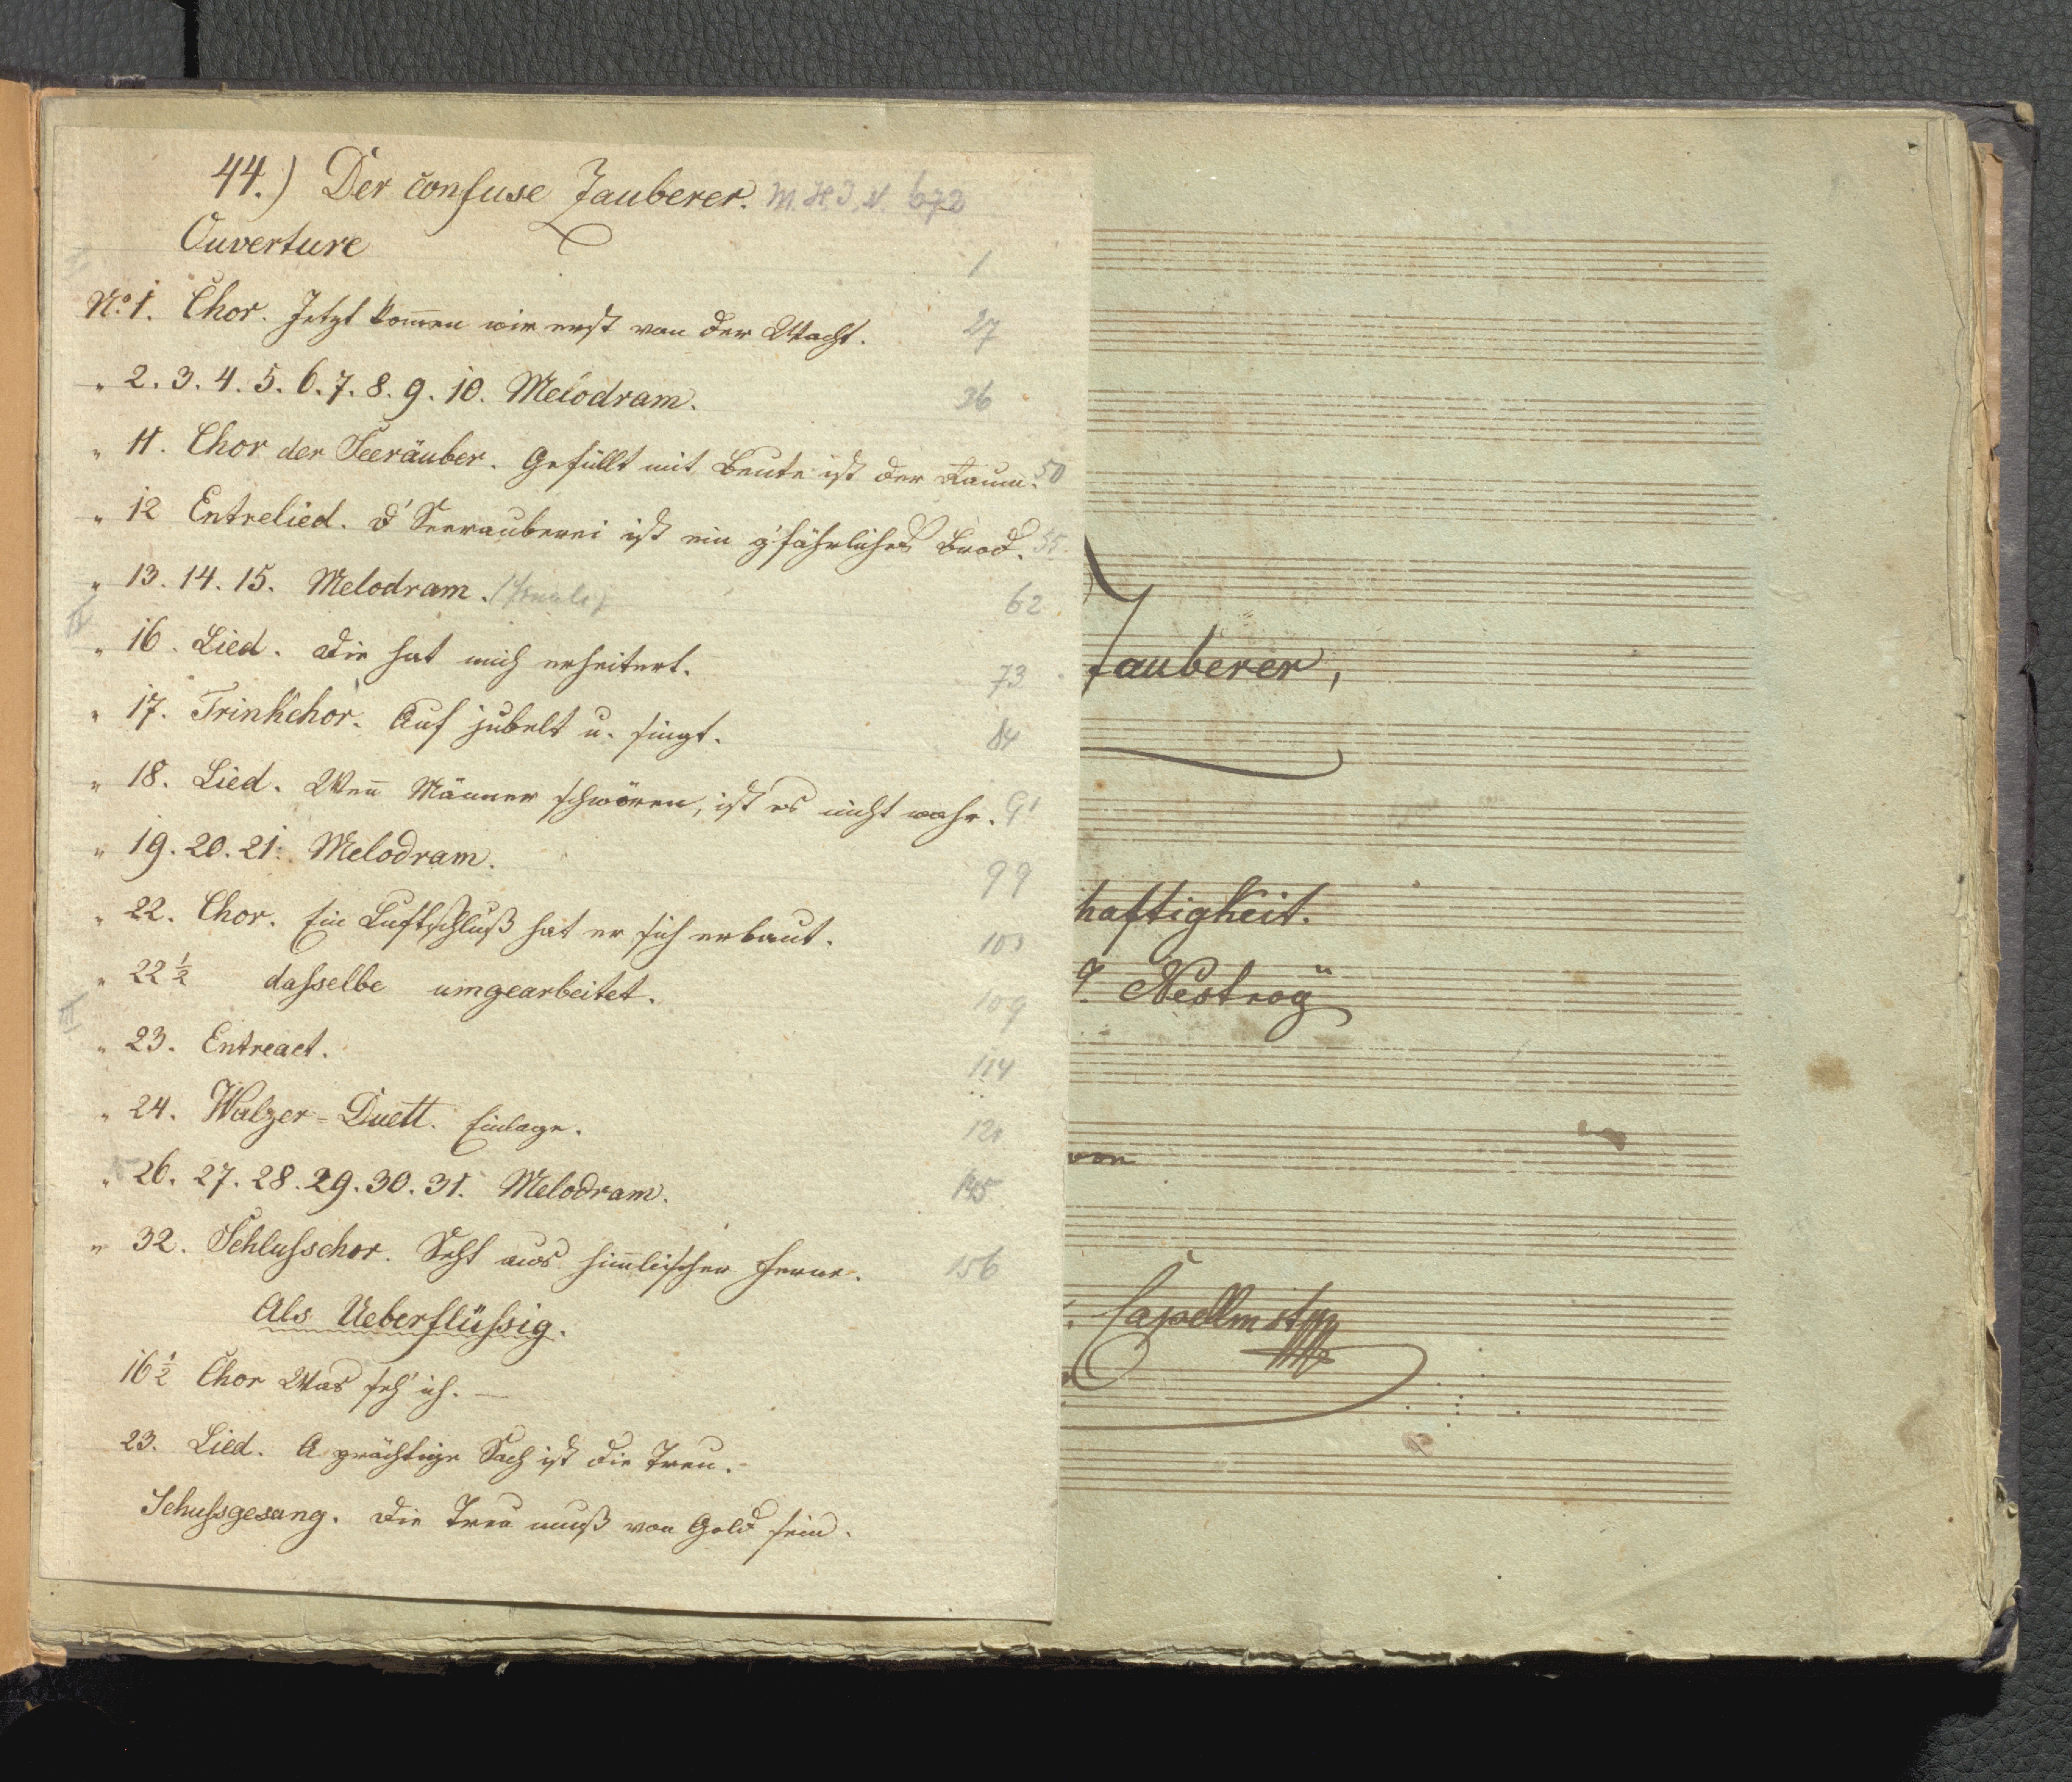 44.) Der confuse Zauberer. M.H.I.N. 672
Ouverture 1
I
No. 1. Chor. Jetzt kom̄en wir erst von der Wacht. 27
" 2. 3. 4. 5. 6. 7. 8. 9. 10. Melodram. 36
" 11. Chor der Seeräuber. Gefüllt mit Beute ist der Raum. 50
" 12 Entrelied. D' Seerauberei ist ein g'fährliches Brod. 55.
" 13. 14. 15. Melodram. (Finale) 62
II
" 16. Lied. Die hat mich erheitert. 73
" 17. Trinkchor. Auf jubelt u. singt. 84
" 18. Lied. Wen̄ Männer schwören, ist es nicht wahr. 91
" 19. 20. 21. Melodram. 99
" 22. Chor. Ein Luftschluß hat er sich erbaut. 103
" 22 1/2 daſselbe umgearbeitet. 109
III
" 23. Entreact. 114
" 24. Walzer-Duett. Einlage. 121
" 26. 27. 28. 29. 30. 31. Melodram. 145
" 32. Schluſschor. Seht aus him̄lischer Ferne. 156
Als Ueberflüſsig.
16 1/2 Chor Was seh' ich. —
23. Lied. A prächtige Sach ist die Treu.
Schuſsgesang. Die Treu muß von Gold sein.
Zauberer,
haftigkeit.
J. Nestroÿ
von
Capellmstr